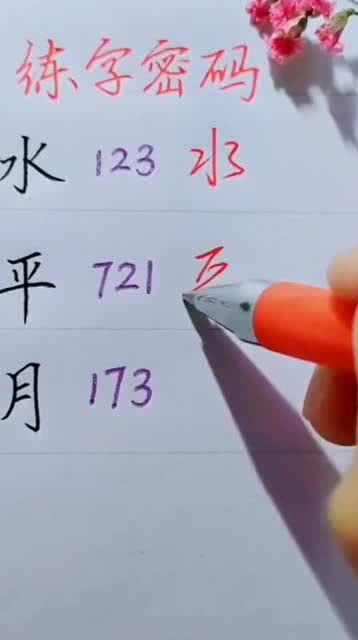 练字密码
水 123 水
平 721
月 173